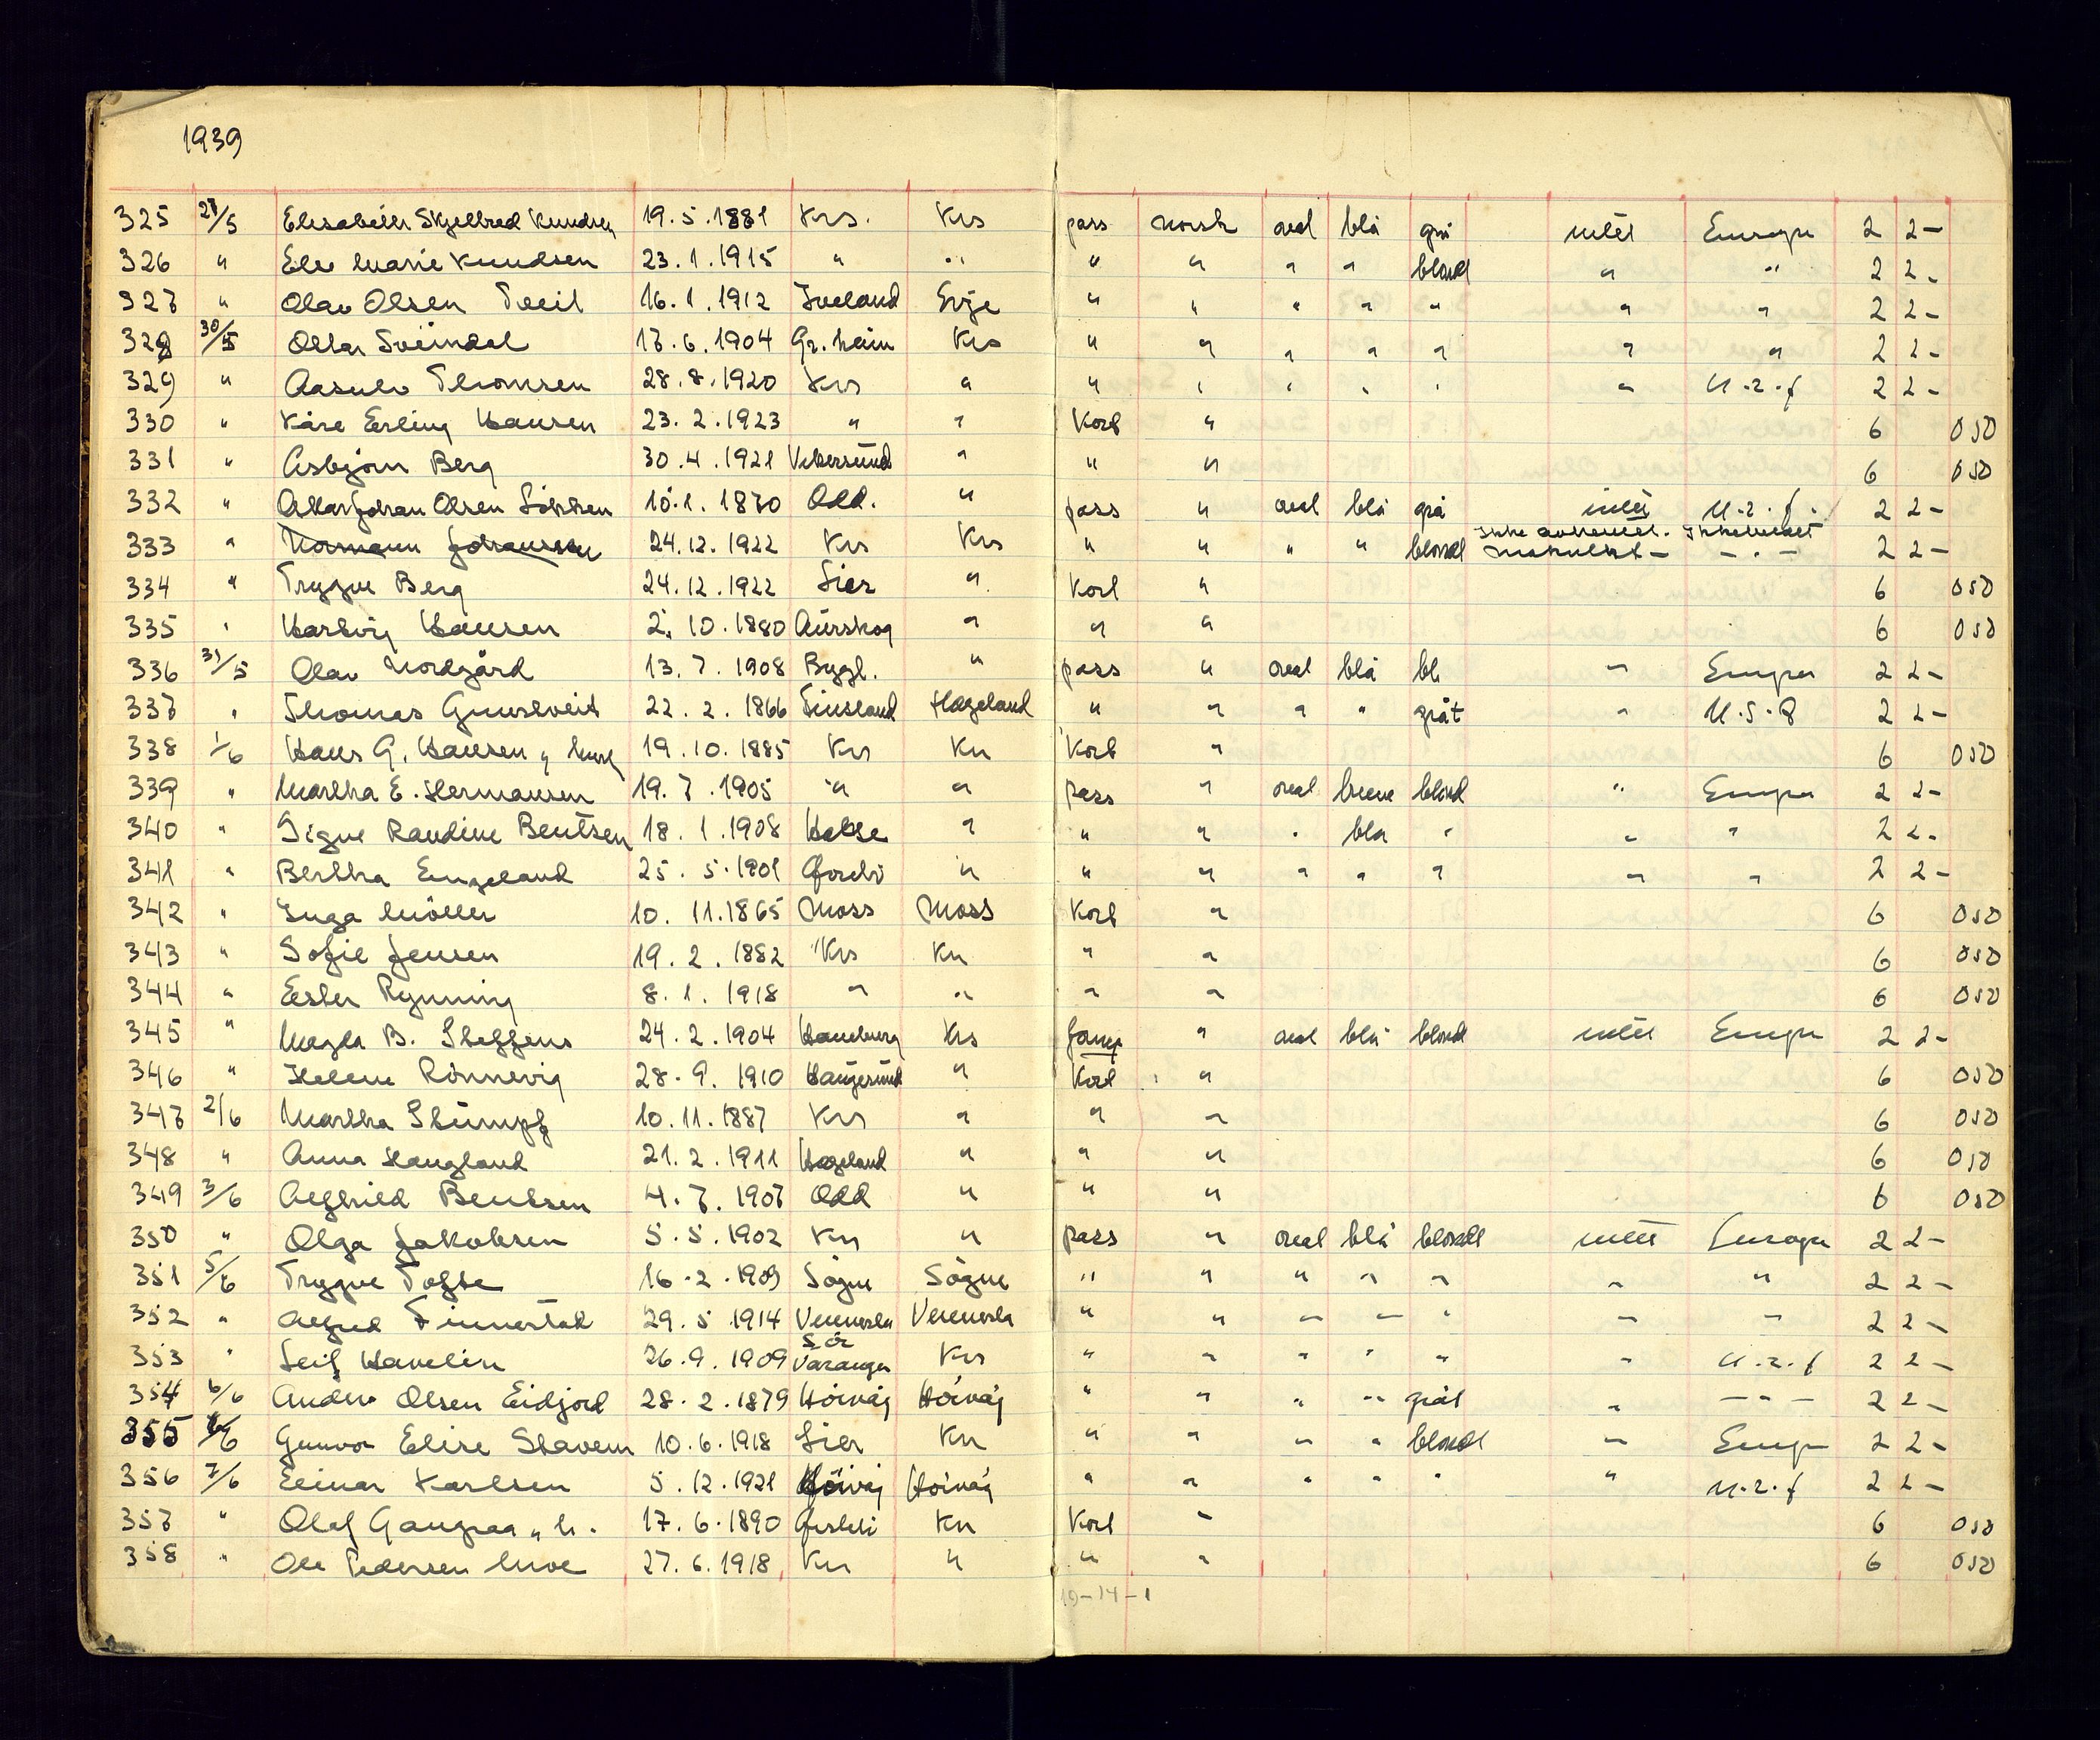 1939
325 27/5 Elisabeth Skjellbred Knudsen 19.5.1881 Krs. Krs pass norsk oval blå grå intet Europa 2 2-
326 " Else Marie Knudsen 23.1.1915 " " " " " " blond " " 2 2-
327 " Olav Olsen Tveit 16.1.1912 Iveland Evje " " " " " " " 2 2-
328 30/5 Ottar Svindal 17.6.1904 Gr.heim Krs " " " " " " " 2 2-
329 " Aasulv Thomsen 28.8.1920 Krs " " " " " " " U.z.f 2 2-
330 " Kåre Erling Hansen 23.2.1923 " " Kort " 6 050
331 " Asbjørn Berg 30.4.1921 Vikersund " " " 6 050
332 " Olsen 10.1.1870 Odd. " pass " oval blå grå intet U.z.f. 2 2-
333 " Normann Johannsen 24.12.1922 Krs Krs " " " " blond Ikke avhentet. Ikke - " - 2 2-
334 " Trygve Berg 24.12.1922 Lier " Kort " 6 050
335 " Hartvig Hansen 2.10.1880 Aurskog " " " 6 050
336 31/5 Olav Nordgård 13.7.1908 Bygl. " pass " oval blå bl. " Europa 2 2-
337 " Thomas 22.2.1866 Finsland Hægeland " " " " grått " U.S.A 2 2-
338 1/6 Hans G. Hansen 19.10.1885 Krs Krs Kort " 6 050
339 " Martha E. Hermansen 19.7.1905 " " pass " oval brune blond " Europa 2 2-
340 " Signe Randine Bentsen 18.1.1908 Halse " " " " blå " " " 2 2-
341 " Bertha Engeland 25.5.1901 " " " " " " " " 2 2-
342 " Inga Möller 10.11.1865 Moss Moss Kort " 6 050
343 " Sofie Jensen 19.2.1882 Krs Krs " " 6 050
344 " Ester Rynning 8.1.1918 " " " " 6 050
345 " Magda B. Steffens 24.2.1904 Hamburg Krs " oval blå blond intet Europa 2 2-
346 " Helene Rönnevig 28.9.1910 Haugesund " Kort " 6 050
347 2/6 Martha Stumpf 10.11.1887 Krs " " " 6 050
348 " Anna Haugland 21.2.1911 Hægeland " " " 6 050
349 3/6 Bentsen 4.7.1907 Odd " " " 6 050
350 " Olga Jakobsen 5.5.1902 Krs " pass " oval blå blondt intet Europa 2 2-
351 5/6 Trygve Tofte 16.2.1909 Sögne Sögne " " " " " " " 2 2-
352 " 29.5.1914 Vennesla Vennesla " " " " " " " 2 2-
353 " Leif Havelin 26.9.1909 Sör Varanger Krs " " " " " " U.z.f 2 2-
354 6/6 Anders Olsen Eidjord 28.2.1879 Hövåg Hövåg " " " " grått " - " - 2 2-
355 6/6 Gunvor Elise Stavem 10.6.1918 Lier Krs " " " " blondt " Europa 2 2-
356 7/6 Einar Karlsen 5.12.1921 Hövåg Hövåg " " " " " " U.z.f 2 2-
357 " Olaf 17.6.1890 Krs Kort " 6 050
358 " Ole Pedersen Moe 27.6.1918 Krs " " " 6 050
19-14-1